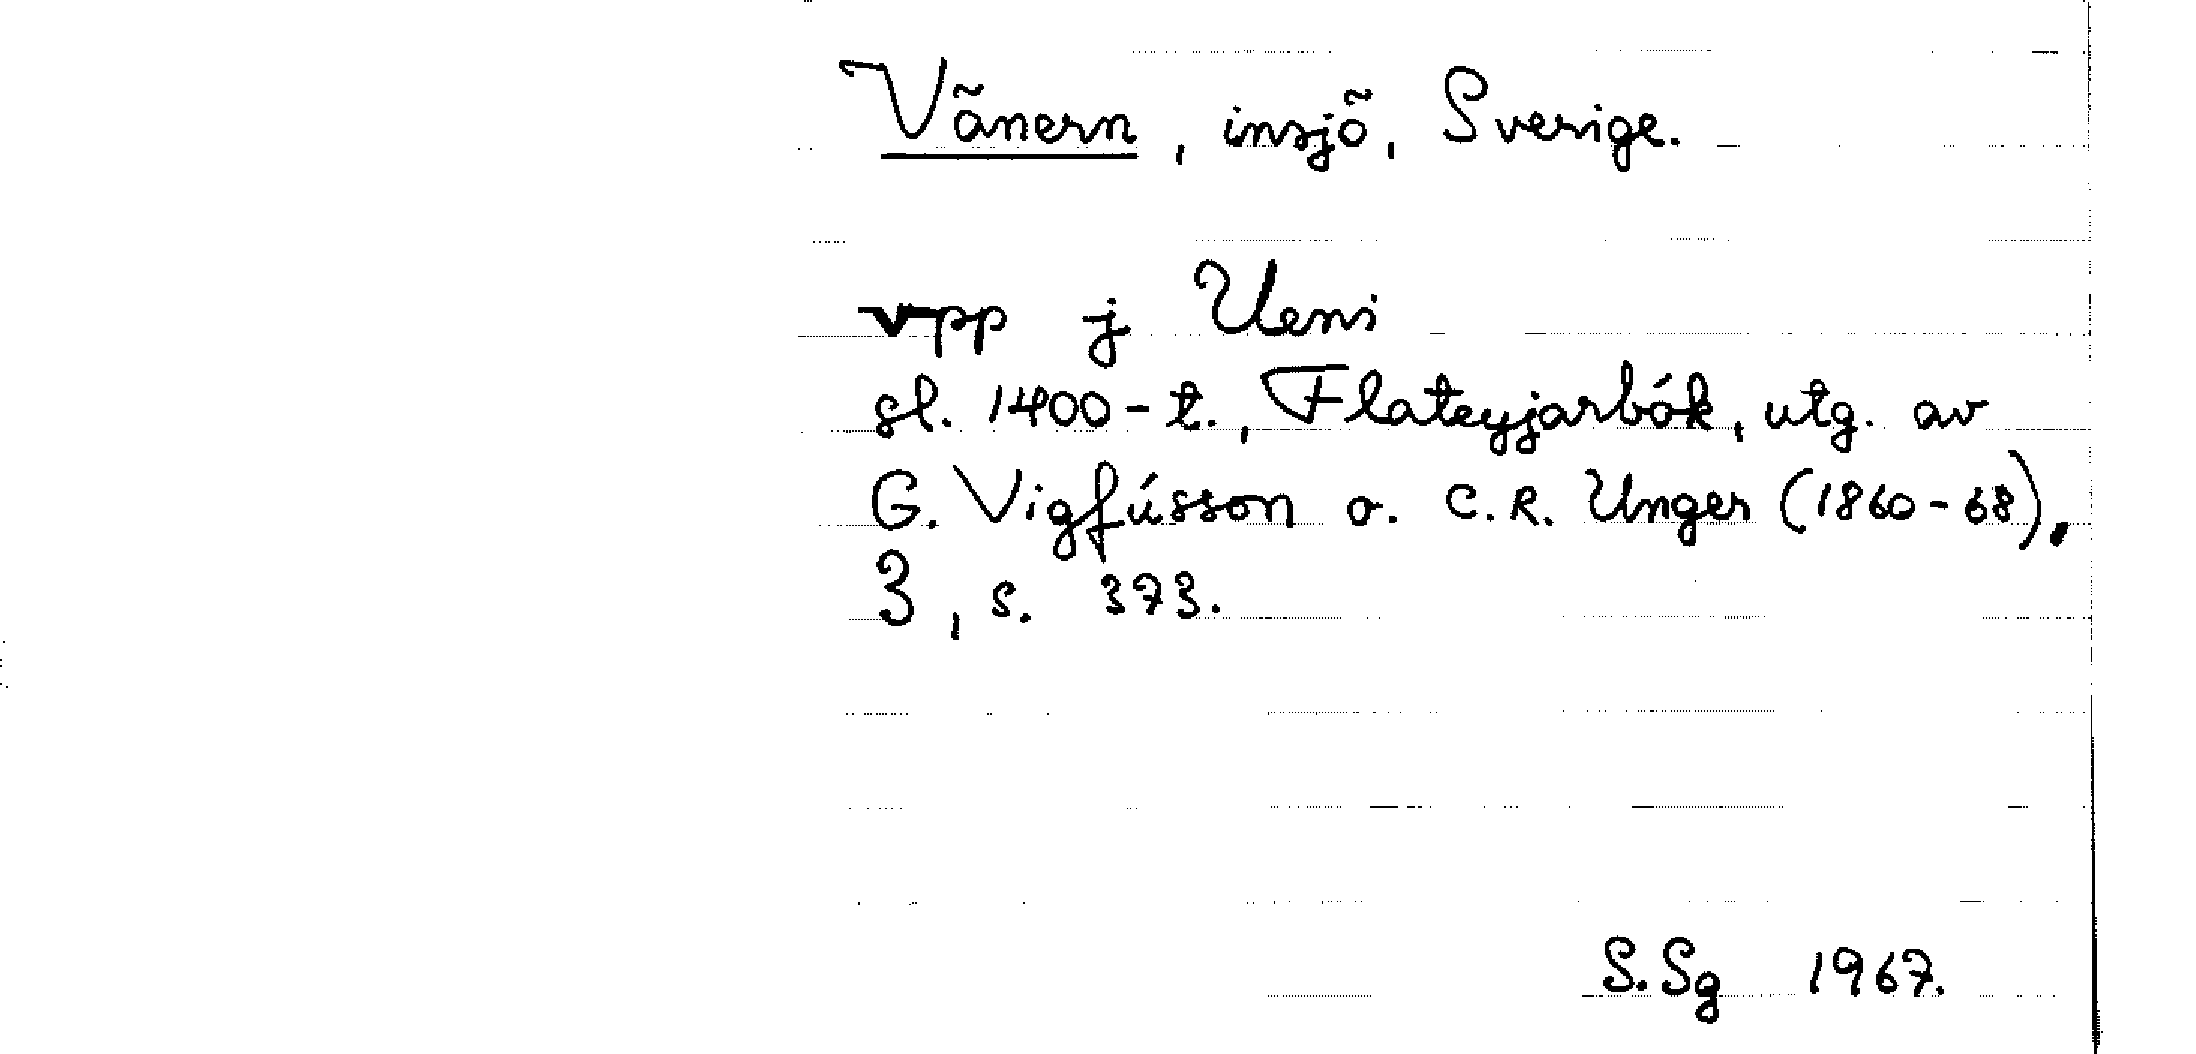 Vänern, insjö, Sverige.
vpp j Ueni
sl. 1400-t., Flateyjarbók, utg. av
G. Vigfússon o. C.R. Unger (1860-68),
3, s. 373.
S.Sg 1967.